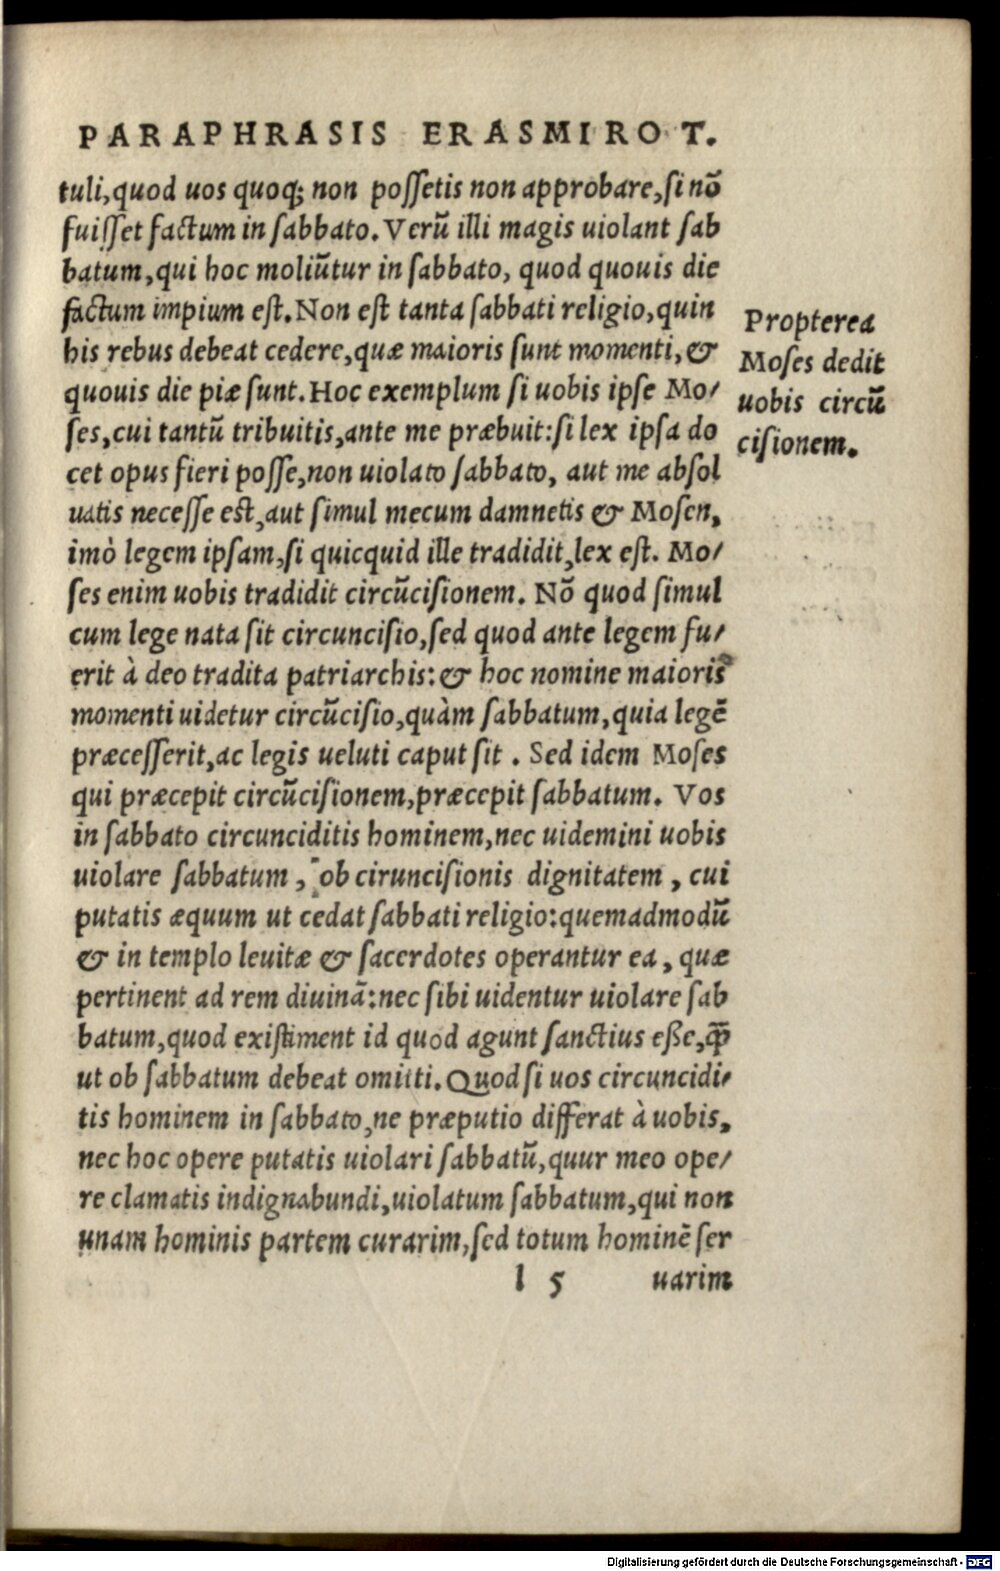 PARAPHRASIS ERASMI ROT.
tuli,quod uos quoq; non possetis non approbare,si nō
fuisset factum in sabbato. Verū illi magis uiolant sab
batum,qui hoc moliūtur in sabbato, quod quouis die
factum impium est. Non est tanta sabbati religio,quin
his rebus debeat cedere,quæ maioris sunt momenti,&
quouis die piæ sunt. Hoc exemplum si uobis ipse Mo/
ses,cui tantū tribuitis,ante me præbuit:si lex ipsa do
cet opus fieri posse,non uiolato sabbato, aut me absol
uatis necesse est,aut simul mecum damnetis & Mosen,
imò legem ipsam,si quicquid ille tradidit,lex est. Mo/
ses enim uobis tradidit circūcisionem. Nō quod simul
cum lege nata sit circuncisio,sed quod ante legem fu/
erit à deo tradita patriarchis:& hoc nomine maioris
momenti uidetur circūcisio,quàm sabbatum,quia legē
præcesserit,ac legis ueluti caput sit . Sed idem Moses
qui præcepit circūcisionem,præcepit sabbatum. Vos
in sabbato circunciditis hominem,nec uidemini uobis
uiolare sabbatum , ob ciruncisionis dignitatem , cui
putatis æquum ut cedat sabbati religio:quemadmodū
& in templo leuitæ & sacerdotes operantur ea, quæ
pertinent ad rem diuinā:nec sibi uidentur uiolare sab
batum,quod existiment id quod agunt sanctius eße,q̄
ut ob sabbatum debeat omitti. Quod si uos circuncidi/
tis hominem in sabbato,ne præputio differat à uobis,
nec hoc opere putatis uiolari sabbatū,quur meo ope/
re clamatis indignabundi,uiolatum sabbatum,qui non
unam hominis partem curarim,sed totum hominē ser
l 5 uarim
Propterea
Moses dedit
uobis circū
cisionem.
Digitalisierung gefördert durch die Deutsche Forschungsgemeinschaft - DFG